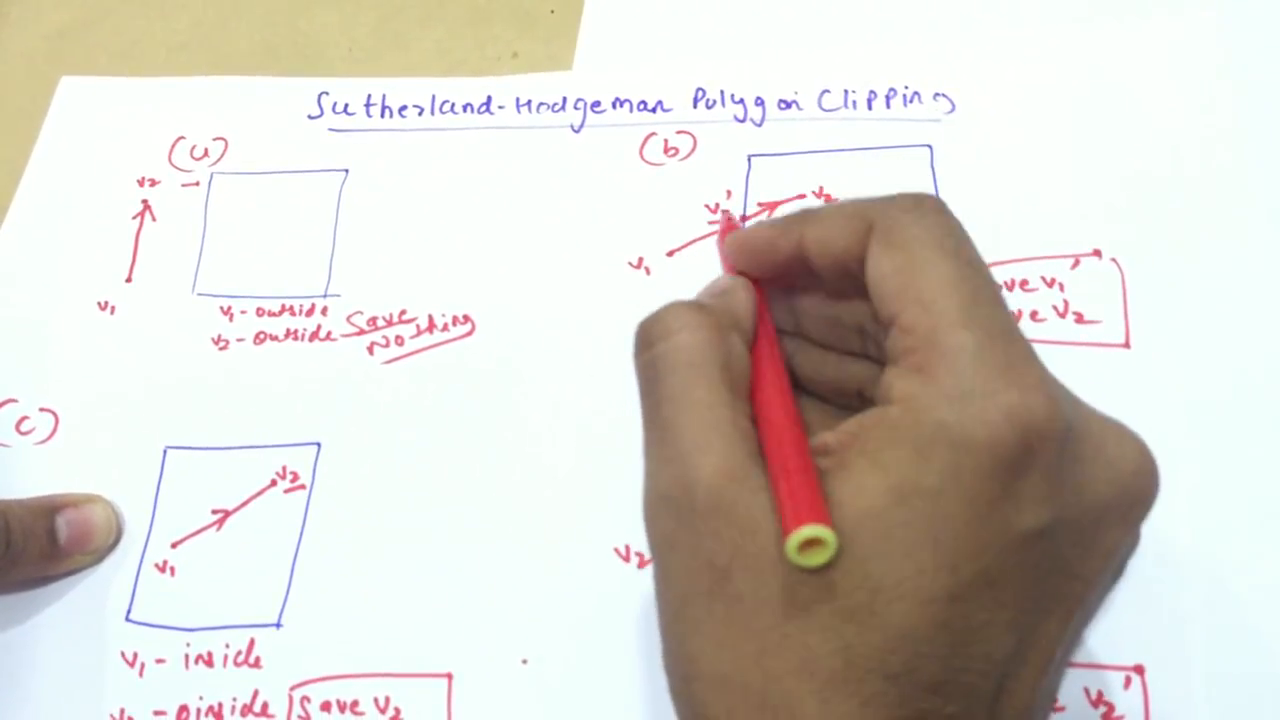 Sutherland-Hodgeman Polygon Clipping
(a)
v2
v1
v1-outside
v2-outside Save Nothing
(b)
v2
v1
ve v1'
ve v2
(c)
v2
v1
v1 - inside
Save v2
v2
v2'